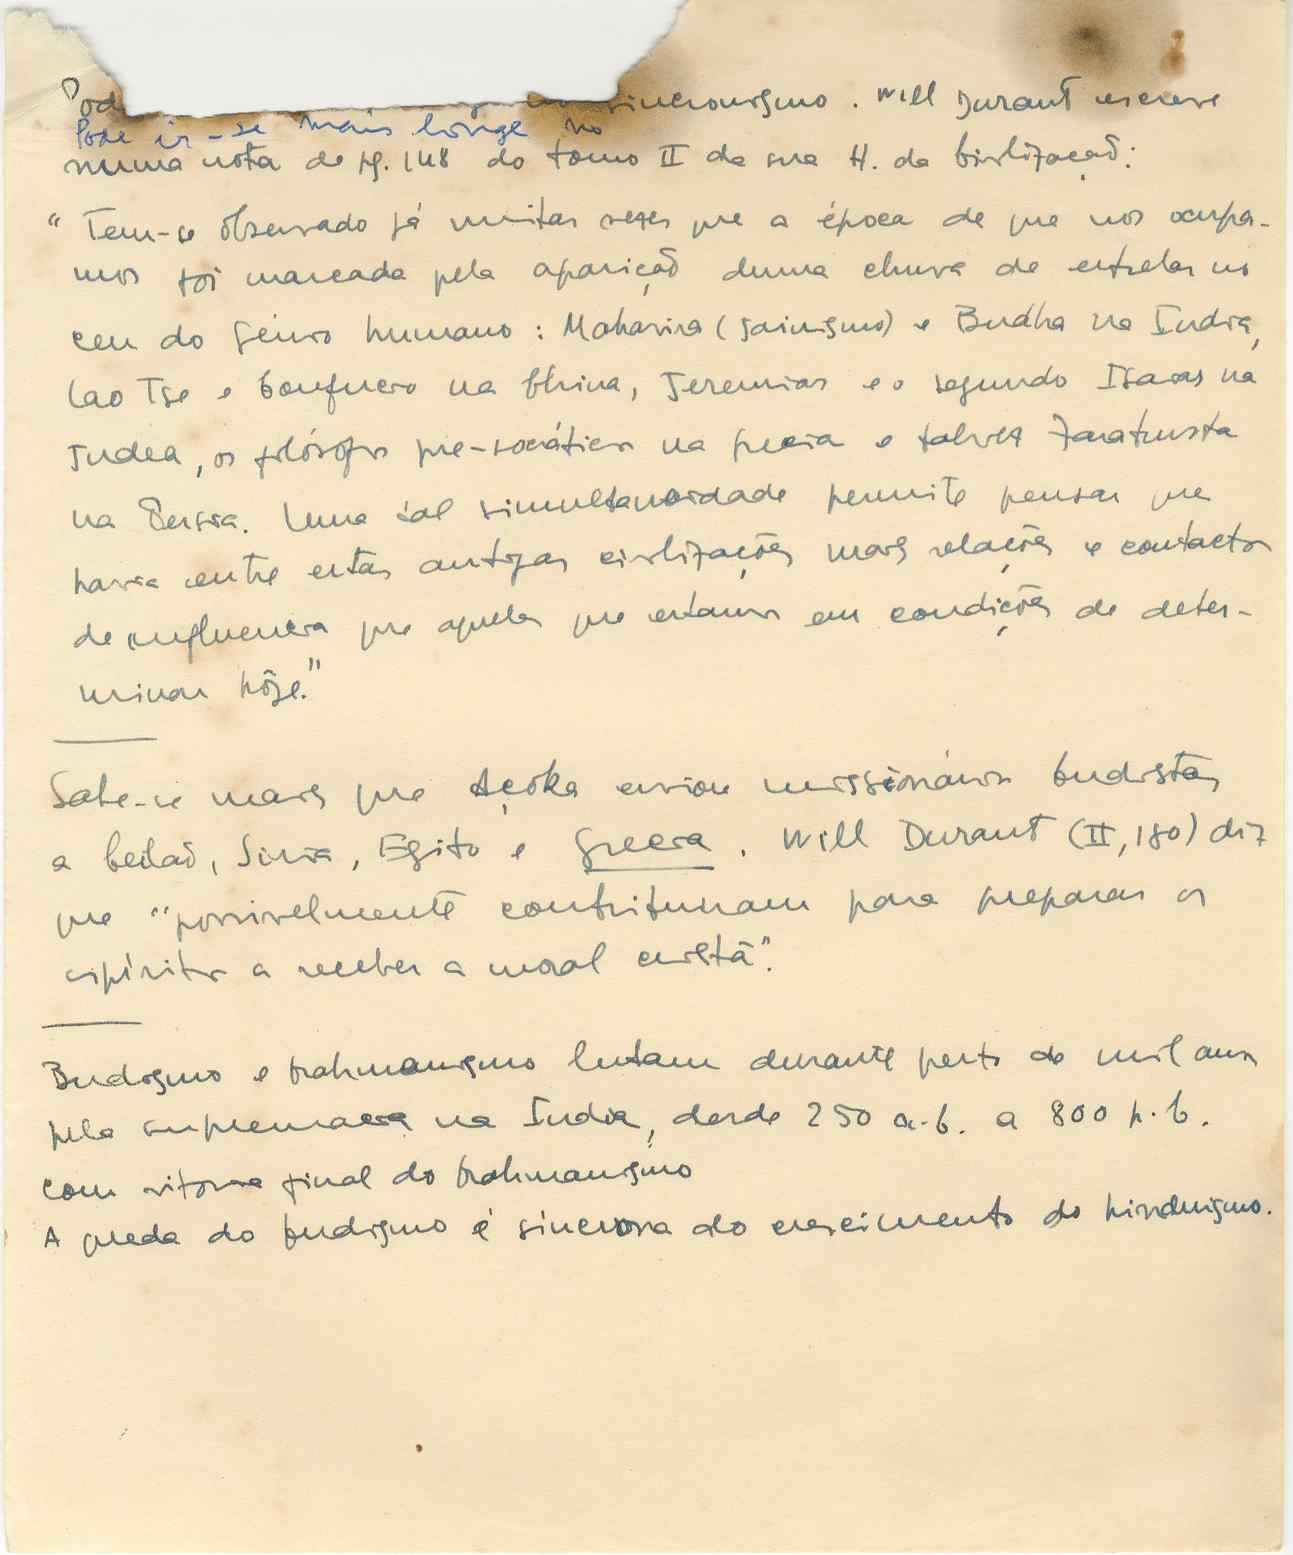 Pod sincronismo. Will Durant escreve
Pode ir-se mais longe no
numa nota de pg. 148 do tomo II da sua H. da Civilização:
"Tem-se observado já muitas vezes que a época de que nos ocupa-
mos foi marcada pela aparição duma chuva de estrelas no
ceu do génio humano: Mahavira (jainismo) e Budha na India,
Lao Tse e Confucio na China, Jeremias e o segundo Isaias na
Judea, os filósofos pre-socráticos na Grecia e talvez Zaratustra
na Persia. Uma tal simultaneidade permite pensar que
havia entre estas antigas civilizações mais relações e contactos
de influencia que aqueles que estamos em condições de deter-
minar hôje."
Sabe-se mais que Açoka enviou missionários budistas
a Ceilão, Siria, Egito e Grecia. Will Durant (II, 180) diz
que "possivelmente contribuiram para preparar os
espíritos a receber a moral cristã".
Budismo e brahmanismo lutam durante perto de mil anos
pela supremacia na India, desde 250 a.C. a 800 p.C.
com vitoria final do brahmanismo
A queda do budismo é sincrona do crescimento do hinduismo.